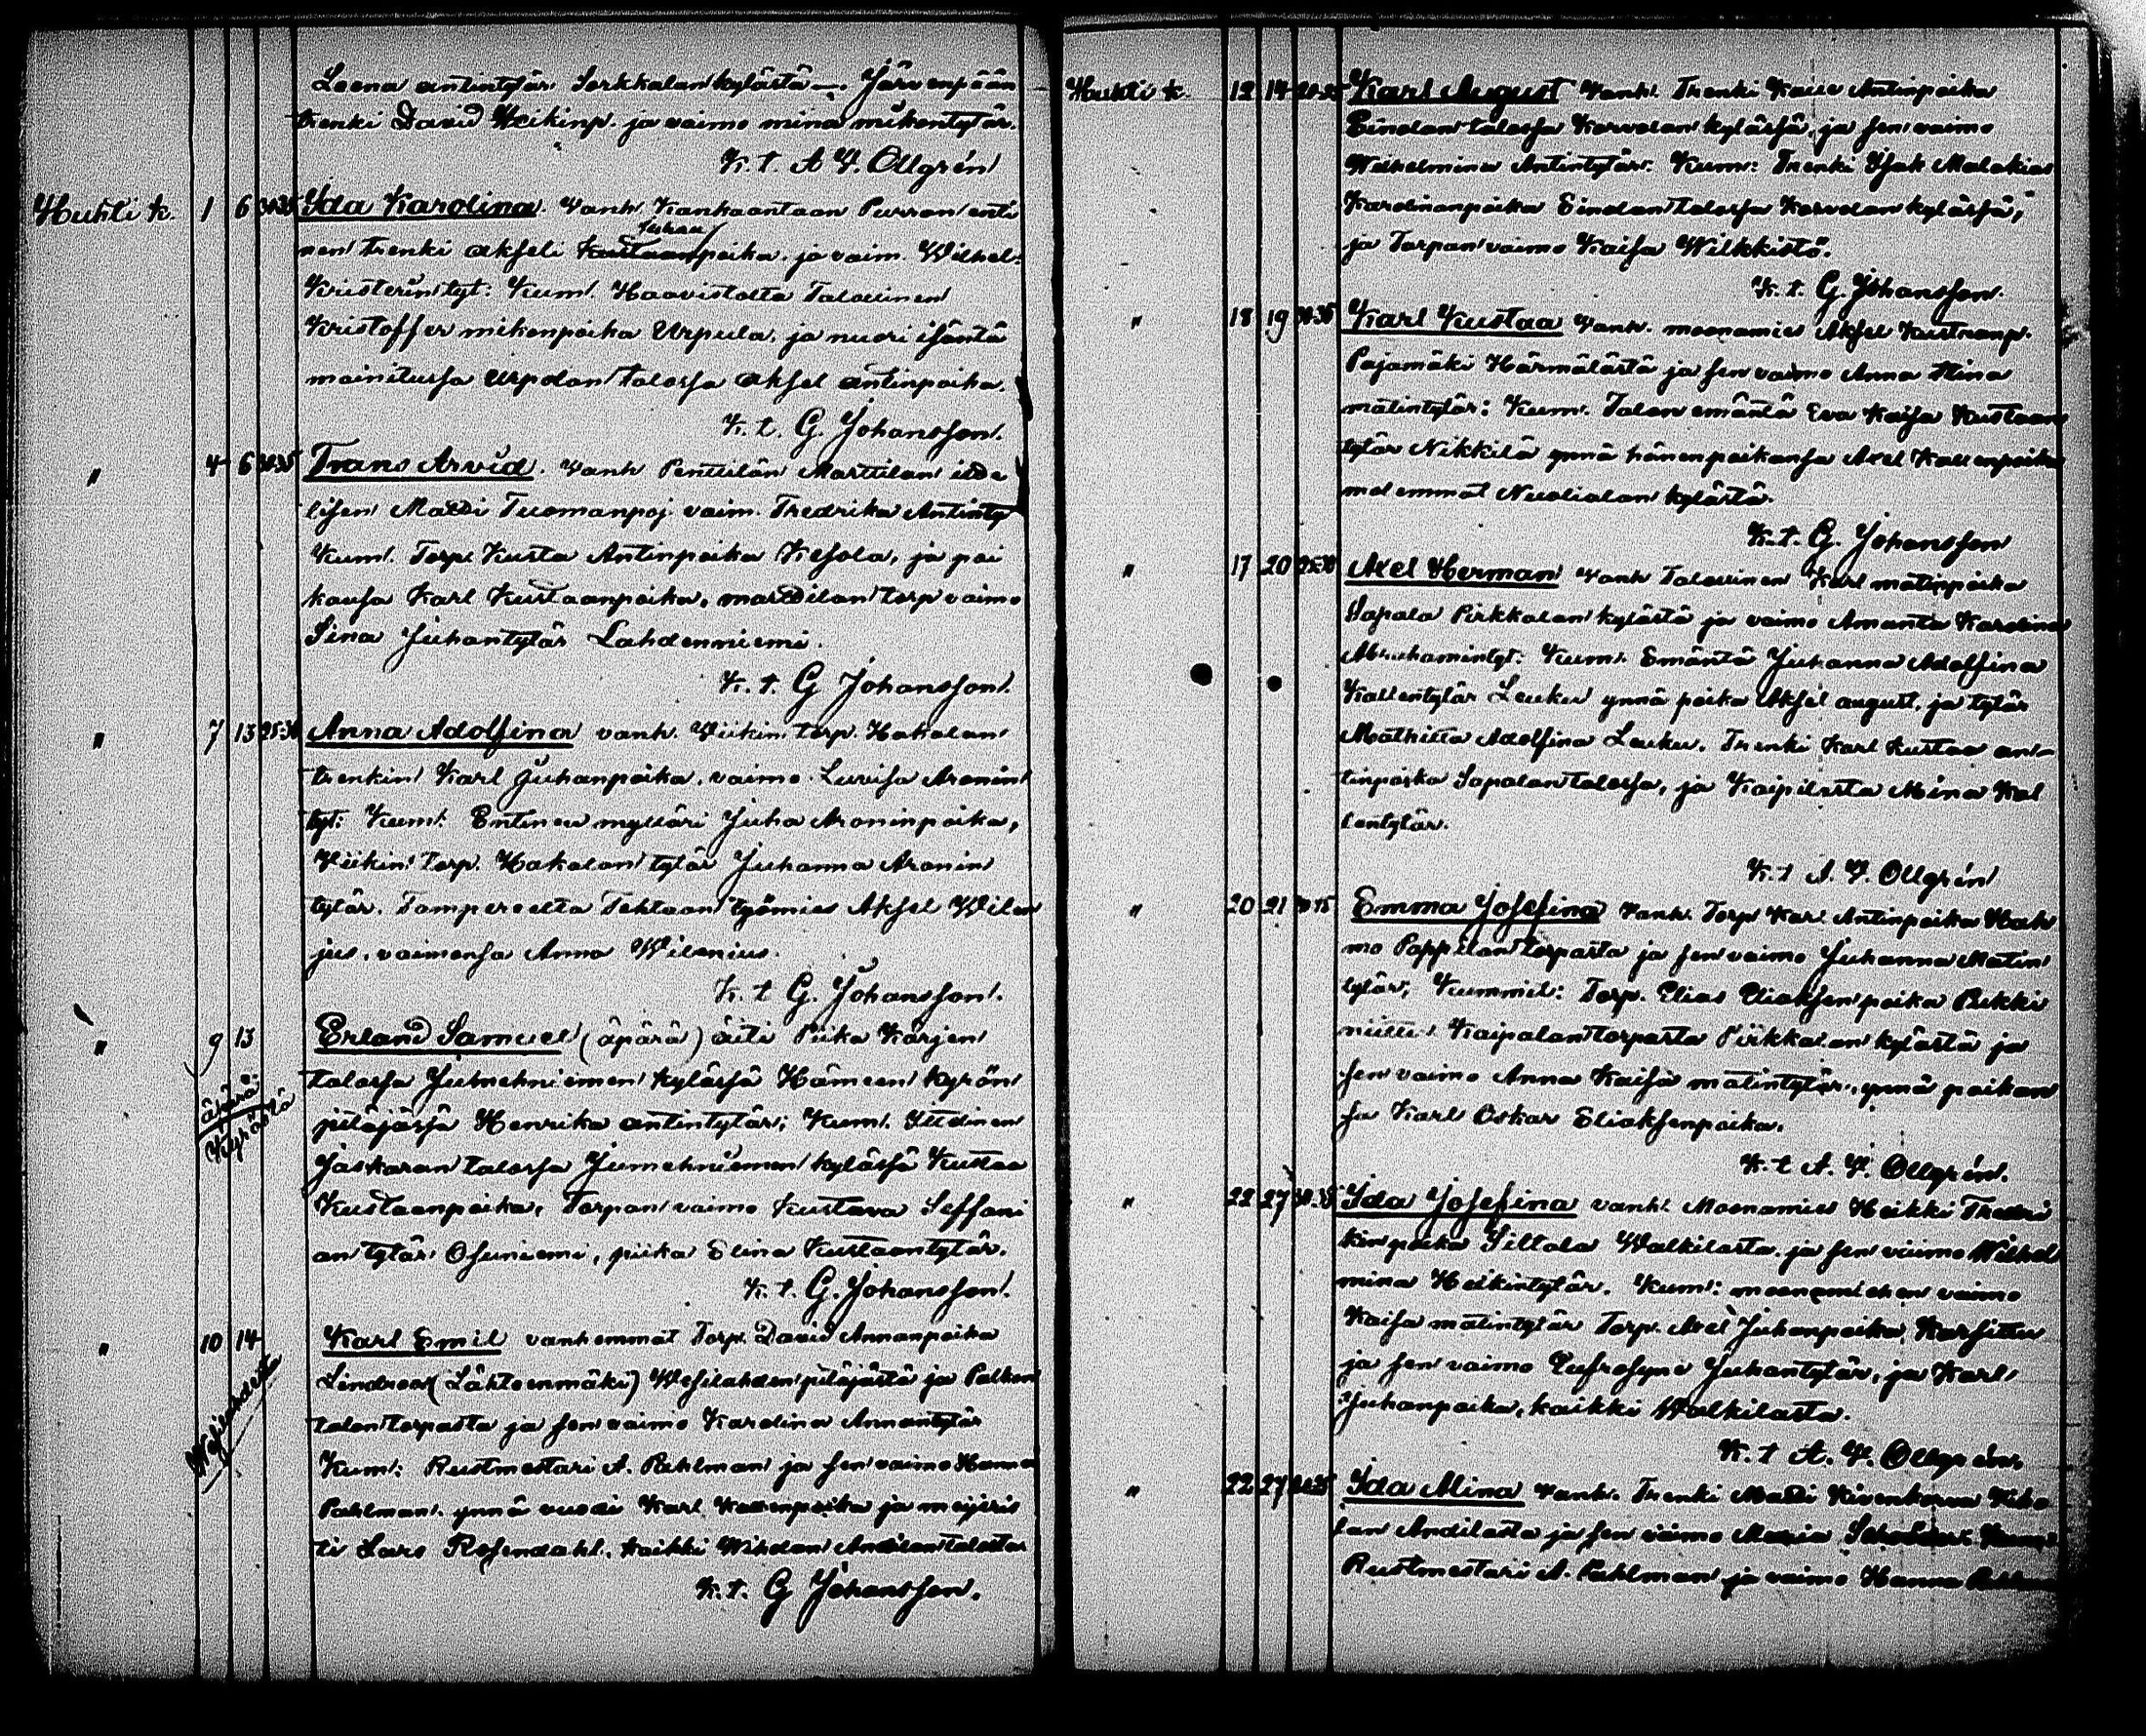 Leena antintytär Sorkkalan kylästä. Järvenpään
trenki David Heikinp. ja vaimo mina mikontytär.
K. t. A V. Ollgrén
Huhti k. 1 6 30-35 Ida Karolina. vanh. Kankaantaan Purran enti
nen trenki akseli Kustaanpoika Juhan ja vaim. Wilhel.
Kristerin tyt: Kum. Haavistolta Talollinen
Kristoffer mikonpoika Urpula, ja nuori isäntä
mainitussa Urpolan talossa aksel antinpoika.
K. t. G. Johansson.
" 4 6 30-35 Frans Arvid. vanh Penttilän Marttilan itse
lisen Matti Tuomanpoj. vaim. Fredrika Antinty
Kum. Torp. Kusta Antinpoika Kesola, ja poi
kansa Karl Kustaanpoika, martilan torp vaimo
Sina Juhantytär Lahdenniemi.
K. t. G Johansson.
" 7 13 25-30 Anna Adolfina vanh. Viikin torp. Hakalan
trenkin Karl Juhanpoika, vaimo Lovisa Aronin
tyt: Kum: Entinen mylläri Juha Aroninpoika,
Viikin torp. Hakalan tytär Juhanna Aronin
tytär. Tampereelta Tehtaan työmies Aksel Wilen
jus, vaimonsa Anna Wilenius.
K. t G. Johansson.
" 9 13 Erland Samuel (äpärä) äiti Piika Kärjen
äpärä:
Kyröstä
talossa Jumehniemen kylässä Hämeen kyrön
pitäjässä Henrika antintytär; Kum. Itsellinen
Jaskaran talossa Jumehniemen kylässä Kustaa
Kustaanpoika, Torpan vaimo Kustava Seffani
an tytär Osuniemi, piika Elina Kustaantytär.
K. t. G. Johansson.
" 10 14 Karl Emil vanhemmat Torp. David Annanpoika
Wesilahdesta
Lindroos (Lähteenmäki) Wesilahden pitäjästä ja Palhon
talon torpasta ja sen vaimo Karolina Annantytär
Kum: Rustmestari A. Pahlman ja sen vaimo Hanna
Pahlman. ynnä vuoti Karl Kallenpoika ja meijeris
ti Lars Rosendahl, kaikki Wihdan Anttilan talosta
K. t. G Johansson.
Huhti k. 12 14 Karl August Vanh. Trenki Kalle Antinpoika
Einolan talossa Korvolan kylässä, ja sen vaimo
Wilhelmina Antintytär: Kum: Trenki Isak Malakias
Karolinanpoika Einolan talossa Korvolan kylässä,
ja Torpan vaimo Kaisa Wilkkistö.
K. t. G. Johansson.
" 18 19 30-35 Karl Kustaa Vanh. moonamies Aksel Kustaanp.
Pajamäki Härmälästä ja sen vaimo Anna Stina
matintytär: Kum. Talon emäntä Eva Kaisa Kustaan
tytär Nikkilä ynnä hänen poikansa Axel Kallenpoika
molemmat Nuolialan kylästä.
K. t. G. Johansson
" 17 20 25-30 Axel Herman Vanh Talollinen Karl matinpoika
Sapala Pirkkalan kylästä ja vaimo Amanta Karolina
Abrahamintyt: Kum. Emäntä Juhanna Adolfina
Kallentytär Leuku ynnä poika Aksel august, ja tytär
Mathilta Adolfina Leuku. Trenki Karl Kustaa an-
tinpoika Sapalan talossa, ja Kaipilasta Mina Kal
lentytär.
K. t A. V. Ollgrén
" 20 21 Emma Josefina Vanh. Torp Karl Antinpoika
mo Pappilan torpasta ja sen vaimo Juhanna Matin
tytär, Kummit: Torp. Elias Eliaksenpoika Rukki
niitti Kaipalan torpasta Pirkkalan kylästä ja
sen vaimo Anna Kaisa matintytär, ynnä poikan
sa Karl Oskar Eliaksenpoika.
K. t A. V. Ollgrén.
" 22 27 30-35 Ida Josefina vanh. Moonamies Heikki Fredri
kinpoika Siltala Walkilasta, ja sen vaimo Wilhel
mina Heikintytär. Kum: moonamiehen vaimo
Kaisa matintytär Torp. Axel Juhanpoika Karsittu
ja sen vaimo Eufrosyne Juhantytär, ja Karl
Juhanpoika, kaikki Walkilasta.
K. t A. V. Ollgrén.
" 22 27 Ida Mina Vanh. Trenki Matti Kivenkorva
lan Anttilasta ja sen vaimo Maria
Rustmestari A. Pahlman ja vaimo Hanna